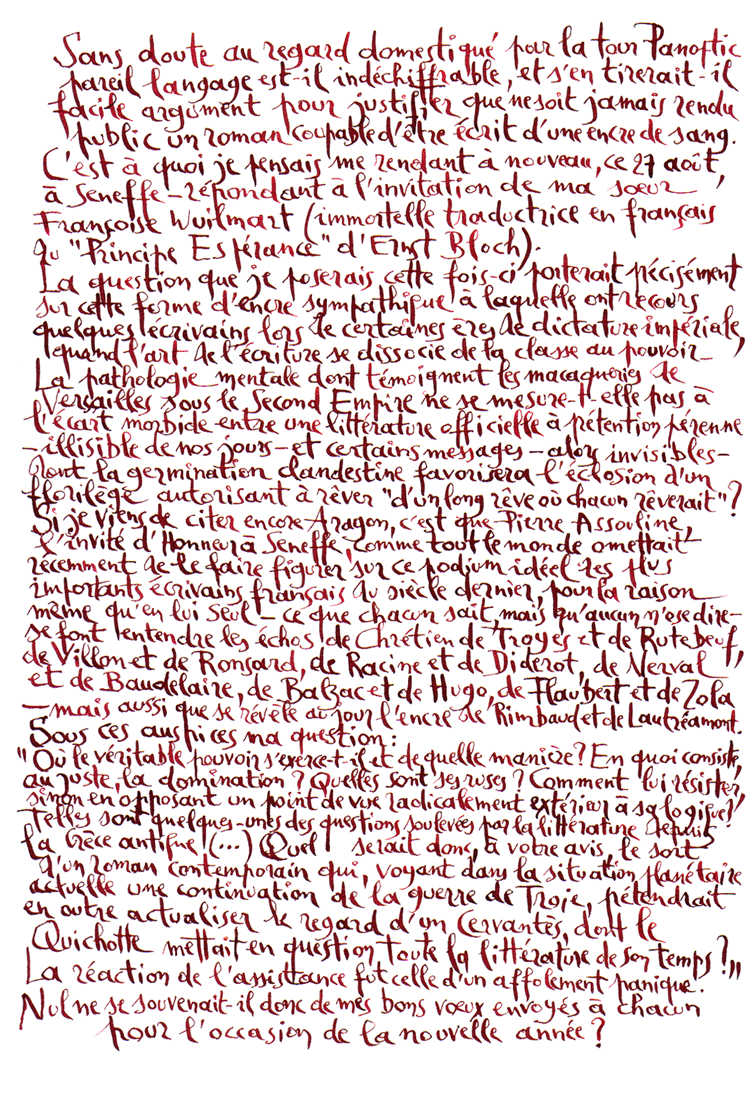 Sans doute au regard domestiqué par la tour Panoptic
pareil langage est-il indéchiffrable, et s'en tirerait-il
facile argument pour justifier que ne soit jamais rendu
public un roman coupable d'être écrit d'une encre de sang.
C'est à quoi je pensais me rendant à nouveau, ce 27 août,
à Seneffe – répondant à l'invitation de ma soeur
Françoise Wuilmart (immortelle traductrice en français
du "Principe Espérance" d'Ernst Bloch).
La question que je poserais cette fois-ci porterait précisément
sur cette forme d'encre sympathique à laquelle ont recours
quelques écrivains lors de certaines ères de dictature impériale,
quand l'art de l'écriture se dissocie de la classe au pouvoir –
La pathologie mentale dont témoignent les macaqueries de
Versailles sous le Second Empire ne se mesure-t-elle pas à
l'écart morbide entre une littérature officielle à prétention pérenne
– illisible de nos jours – et certains messages – alors invisibles –
dont la germination clandestine favorisera l'éclosion d'un
florilège autorisant à rêver "d'un long rêve où chacun rêverait" ?
Si je viens de citer encore Aragon, c'est que Pierre Assouline,
l'invité d'Honneur à Seneffe, comme tout le monde omettait
récemment de le faire figurer sur ce podium idéel des plus
importants écrivains français du siècle dernier, pour la raison
même qu'en lui seul – ce que chacun sait, mais qu'aucun n'ose dire –
se font entendre les échos de Chrétien de Troyes et de Rutebeuf,
de Villon et de Ronsard, de Racine et de Diderot, de Nerval
et de Baudelaire, de Balzac et de Hugo, de Flaubert et de Zola
– mais aussi que se révèle au jour l'encre de Rimbaud et de Lautréamont.
Sous ces auspices ma question :
"Où le véritable pouvoir s'exerce-t-il et de quelle manière ? En quoi consiste,
au juste, la domination ? Quelles sont ses ruses ? Comment lui résister,
sinon en opposant un point de vue radicalement extérieur à sa logique ?
Telles sont quelques-unes des questions soulevées par la littérature depuis
la Grèce antique (...) Quel serait donc, à votre avis, le sort
d'un roman contemporain qui, voyant dans la situation planétaire
actuelle une continuation de la guerre de Troie, prétendrait
en outre actualiser le regard d'un Cervantès, dont le
Quichotte mettait en question toute la littérature de son temps ?"
La réaction de l'assistance fut celle d'un affolement panique.
Nul ne se souvenait-il donc de mes bons voeux envoyés à chacun
pour l'occasion de la nouvelle année ?